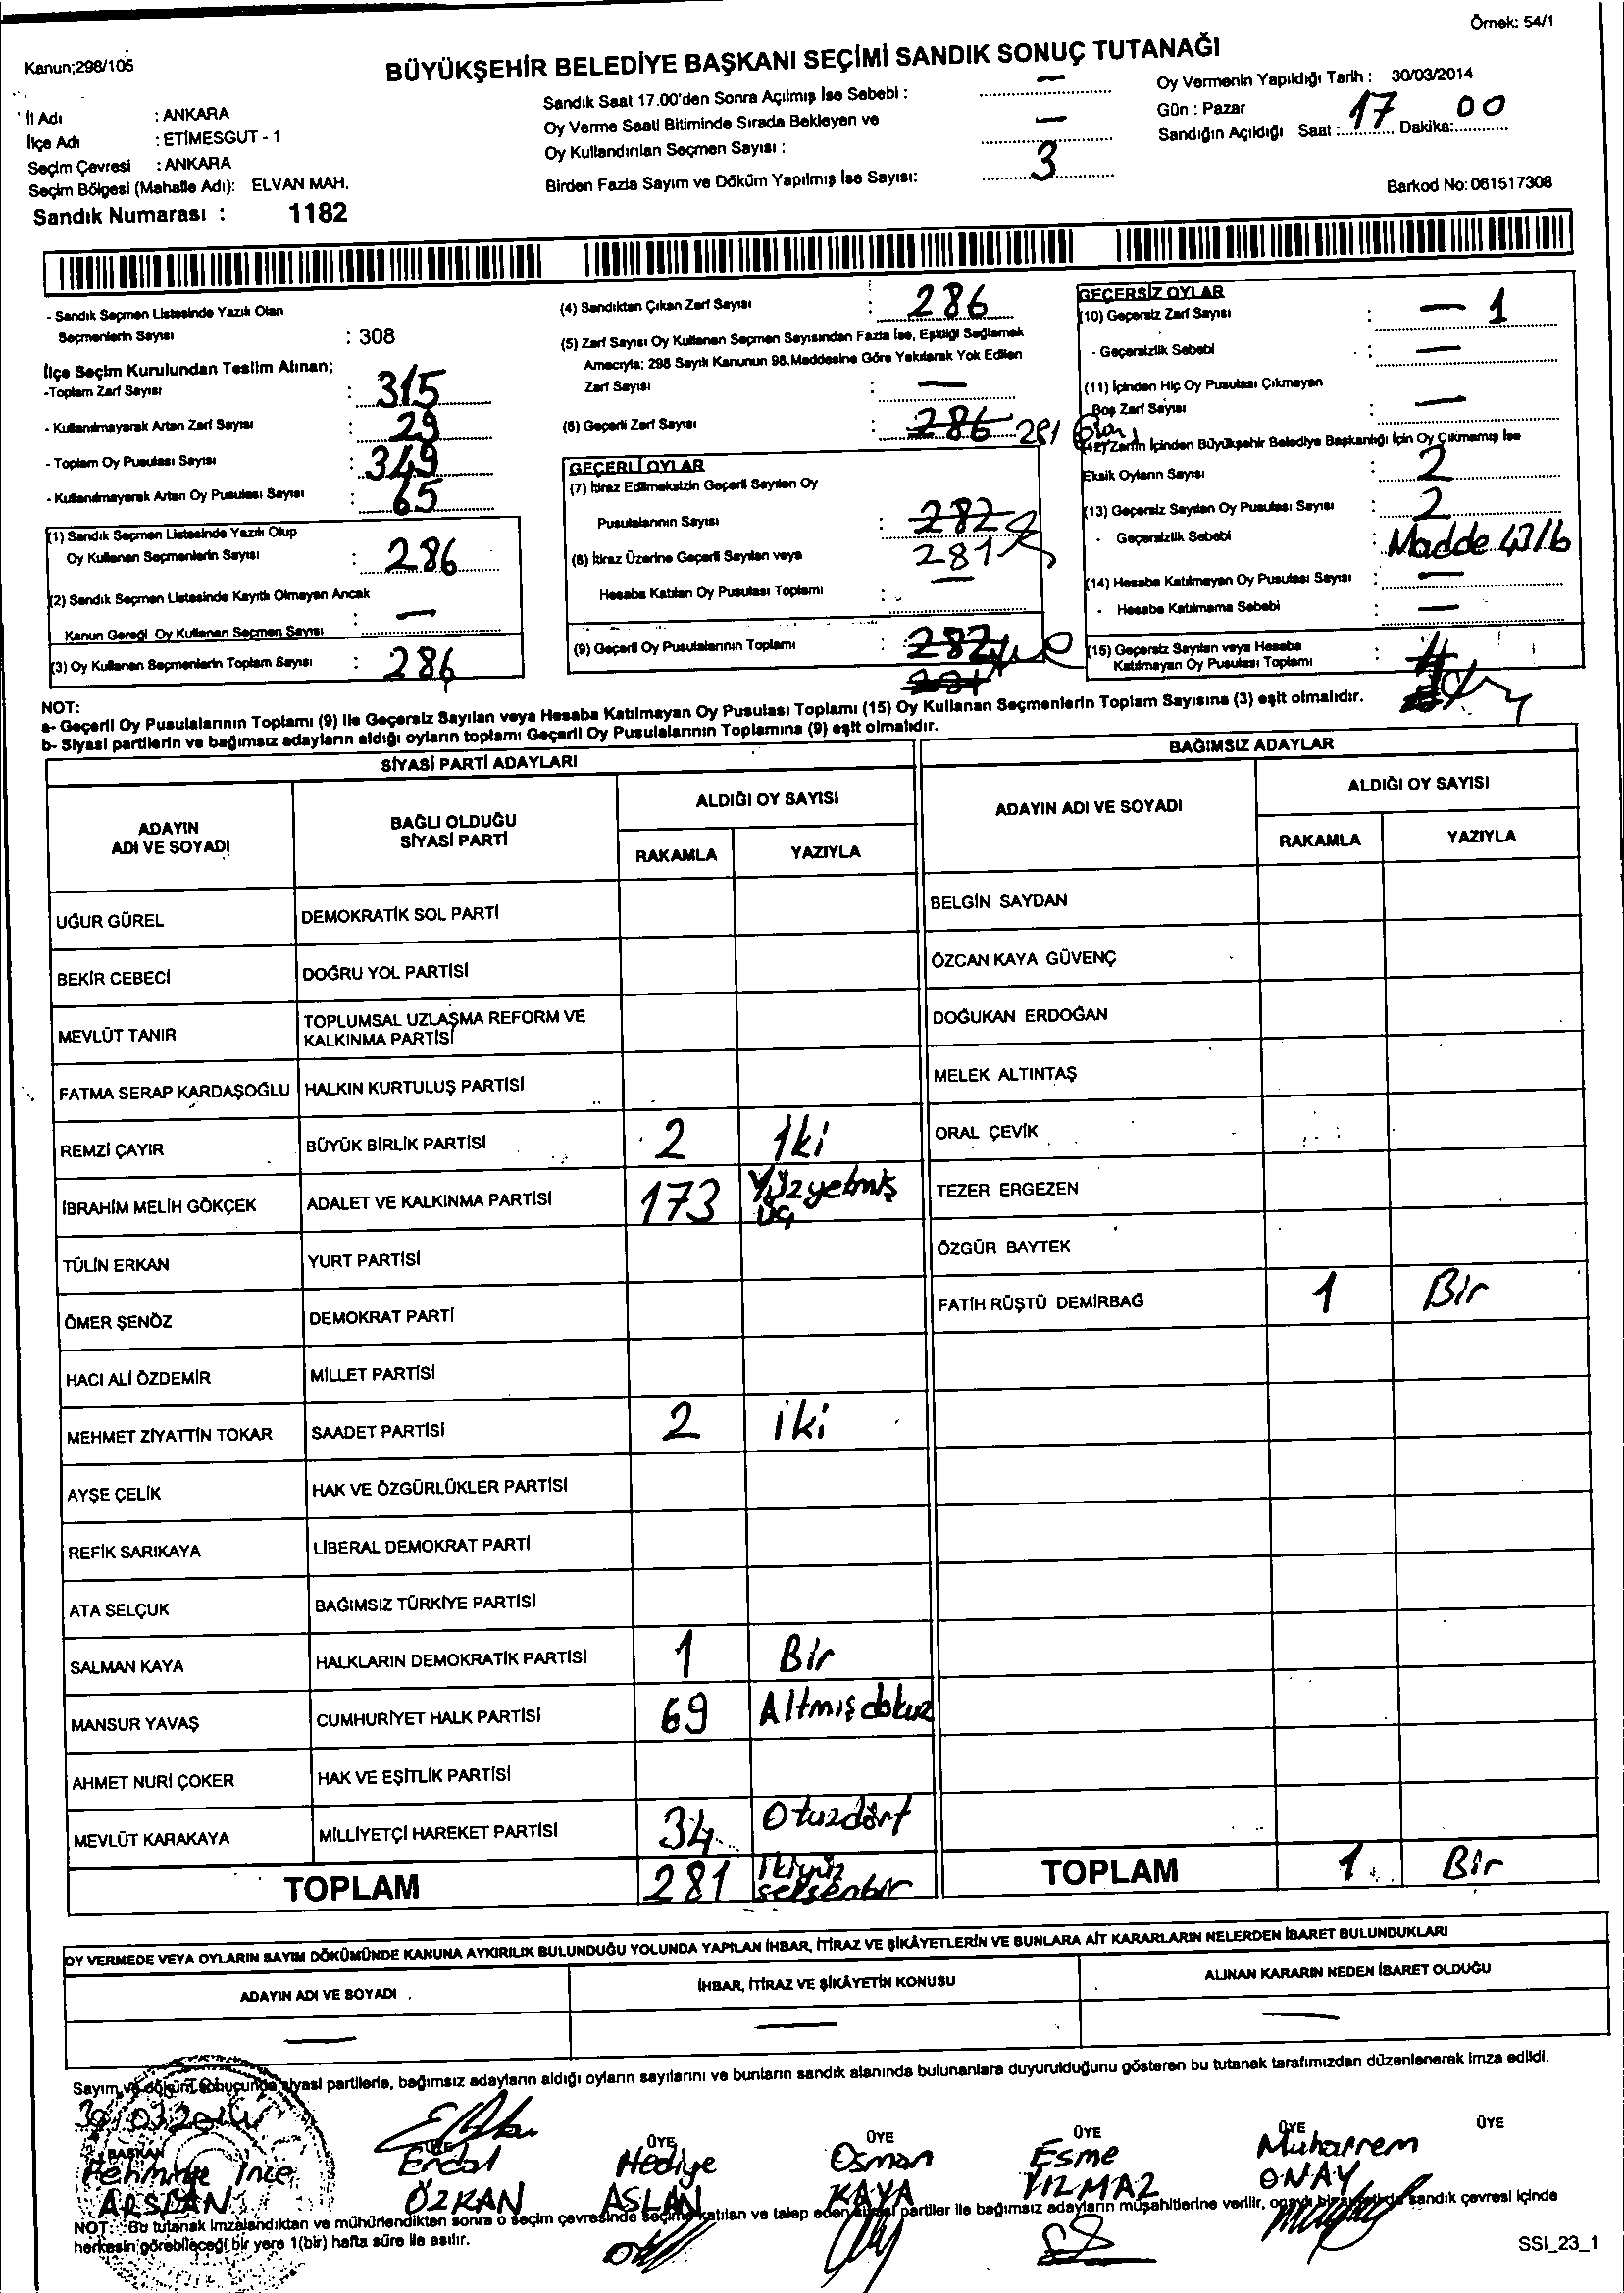 Örnek: 54/1
Kanun;298/105
BÜYÜKŞEHİR BELEDİYE BAŞKANI SEÇİMİ SANDIK SONUÇ TUTANAĞI
İl Adı : ANKARA
İlçe Adı : ETİMESGUT - 1
Seçim Çevresi : ANKARA
Seçim Bölgesi (Mahalle Adı): ELVAN MAH.
Sandık Numarası : 1182
Sandık Saat 17.00'den Sonra Açılmış İse Sebebi : —
Oy Verme Saati Bitiminde Sırada Bekleyen ve
Oy Kullandırılan Seçmen Sayısı : —
Birden Fazla Sayım ve Döküm Yapılmış İse Sayısı: 3
Oy Vermenin Yapıldığı Tarih : 30/03/2014
Gün : Pazar
Sandığın Açıldığı Saat : 17 Dakika: 00
Barkod No: 061517308
- Sandık Seçmen Listesinde Yazılı Olan
Seçmenlerin Sayısı : 308
İlçe Seçim Kurulundan Teslim Alınan;
-Toplam Zarf Sayısı : 315
- Kullanılmayarak Artan Zarf Sayısı : 29
- Toplam Oy Pusulası Sayısı : 349
- Kullanılmayarak Artan Oy Pusulası Sayısı : 65
(1) Sandık Seçmen Listesinde Yazılı Olup
Oy Kullanan Seçmenlerin Sayısı : 286
(2) Sandık Seçmen Listesinde Kayıtlı Olmayan Ancak
Kanun Gereği Oy Kullanan Seçmen Sayısı : —
(3) Oy Kullanan Seçmenlerin Toplam Sayısı : 286
(4) Sandıktan Çıkan Zarf Sayısı : 286
(5) Zarf Sayısı Oy Kullanan Seçmen Sayısından Fazla İse, Eşitliği Sağlamak
Amacıyla; 298 Sayılı Kanunun 98.Maddesine Göre Yakılarak Yok Edilen
Zarf Sayısı : —
(6) Geçerli Zarf Sayısı : 286 281
GEÇERLİ OYLAR
(7) İtiraz Edilmeksizin Geçerli Sayılan Oy
Pusulalarının Sayısı : 282
281
(8) İtiraz Üzerine Geçerli Sayılan veya
Hesaba Katılan Oy Pusulası Toplamı : —
(9) Geçerli Oy Pusulalarının Toplamı : 282
281
GEÇERSİZ OYLAR
(10) Geçersiz Zarf Sayısı : — 1
- Geçersizlik Sebebi : —
(11) İçinden Hiç Oy Pusulası Çıkmayan
Boş Zarf Sayısı : —
(12) Zarfın İçinden Büyükşehir Belediye Başkanlığı İçin Oy Çıkmamış İse
Eksik Oyların Sayısı : 2
(13) Geçersiz Sayılan Oy Pusulası Sayısı : 2
- Geçersizlik Sebebi : Madde 47/b
(14) Hesaba Katılmayan Oy Pusulası Sayısı : —
- Hesaba Katılmama Sebebi : —
(15) Geçersiz Sayılan veya Hesaba
Katılmayan Oy Pusulası Toplamı : 4
NOT:
a- Geçerli Oy Pusulalarının Toplamı (9) ile Geçersiz Sayılan veya Hesaba Katılmayan Oy Pusulası Toplamı (15) Oy Kullanan Seçmenlerin Toplam Sayısına (3) eşit olmalıdır.
b- Siyasi partilerin ve bağımsız adayların aldığı oyların toplamı Geçerli Oy Pusulalarının Toplamına (9) eşit olmalıdır.
SİYASİ PARTİ ADAYLARI
BAĞIMSIZ ADAYLAR
ADAYIN ADI VE SOYADI
BAĞLI OLDUĞU SİYASİ PARTİ
ALDIĞI OY SAYISI
RAKAMLA YAZIYLA
ADAYIN ADI VE SOYADI
ALDIĞI OY SAYISI
RAKAMLA YAZIYLA
UĞUR GÜREL DEMOKRATİK SOL PARTİ BELGİN SAYDAN
BEKİR CEBECİ DOĞRU YOL PARTİSİ ÖZCAN KAYA GÜVENÇ
MEVLÜT TANIR TOPLUMSAL UZLAŞMA REFORM VE KALKINMA PARTİSİ DOĞUKAN ERDOĞAN
FATMA SERAP KARDAŞOĞLU HALKIN KURTULUŞ PARTİSİ MELEK ALTINTAŞ
REMZİ ÇAYIR BÜYÜK BİRLİK PARTİSİ 2 İki ORAL ÇEVİK
İBRAHİM MELİH GÖKÇEK ADALET VE KALKINMA PARTİSİ 173 Yüzyetmiş üç TEZER ERGEZEN
TÜLİN ERKAN YURT PARTİSİ ÖZGÜR BAYTEK
ÖMER ŞENÖZ DEMOKRAT PARTİ FATİH RÜŞTÜ DEMİRBAĞ 1 Bir
HACI ALİ ÖZDEMİR MİLLET PARTİSİ
MEHMET ZİYATTİN TOKAR SAADET PARTİSİ 2 iki
AYŞE ÇELİK HAK VE ÖZGÜRLÜKLER PARTİSİ
REFİK SARIKAYA LİBERAL DEMOKRAT PARTİ
ATA SELÇUK BAĞIMSIZ TÜRKİYE PARTİSİ
SALMAN KAYA HALKLARIN DEMOKRATİK PARTİSİ 1 Bir
MANSUR YAVAŞ CUMHURİYET HALK PARTİSİ 69 Altmışdokuz
AHMET NURİ ÇOKER HAK VE EŞİTLİK PARTİSİ
MEVLÜT KARAKAYA MİLLİYETÇİ HAREKET PARTİSİ 34 Otuzdört
TOPLAM 281 İkiyüz seksenbir TOPLAM 1 Bir
OY VERMEDE VEYA OYLARIN SAYIM DÖKÜMÜNDE KANUNA AYKIRILIK BULUNDUĞU YOLUNDA YAPILAN İHBAR, İTİRAZ VE ŞİKÂYETLERİN VE BUNLARA AİT KARARLARIN NELERDEN İBARET BULUNDUKLARI
ADAYIN ADI VE SOYADI İHBAR, İTİRAZ VE ŞİKÂYETİN KONUSU ALINAN KARARIN NEDEN İBARET OLDUĞU
— — —
Sayım ve döküm sonucunda siyasi partilerle, bağımsız adayların aldığı oyların sayılarını ve bunların sandık alanında bulunanlara duyurulduğunu gösteren bu tutanak tarafımızdan düzenlenerek imza edildi.
30.03.2014
BAŞKAN ÜYE ÜYE ÜYE ÜYE ÜYE ÜYE
İnce Erdal Hediye Osman Esme Muharrem
ARSLAN ÖZKAN ASLAN KAYA YILMAZ ONAY
NOT: Bu tutanak imzalandıktan ve mühürlendikten sonra o seçim çevresinde seçime katılan ve talep eden siyasi partiler ile bağımsız adayların müşahitlerine verilir, sandık çevresi içinde
herkesin görebileceği bir yere 1(bir) hafta süre ile asılır.
SSI_23_1